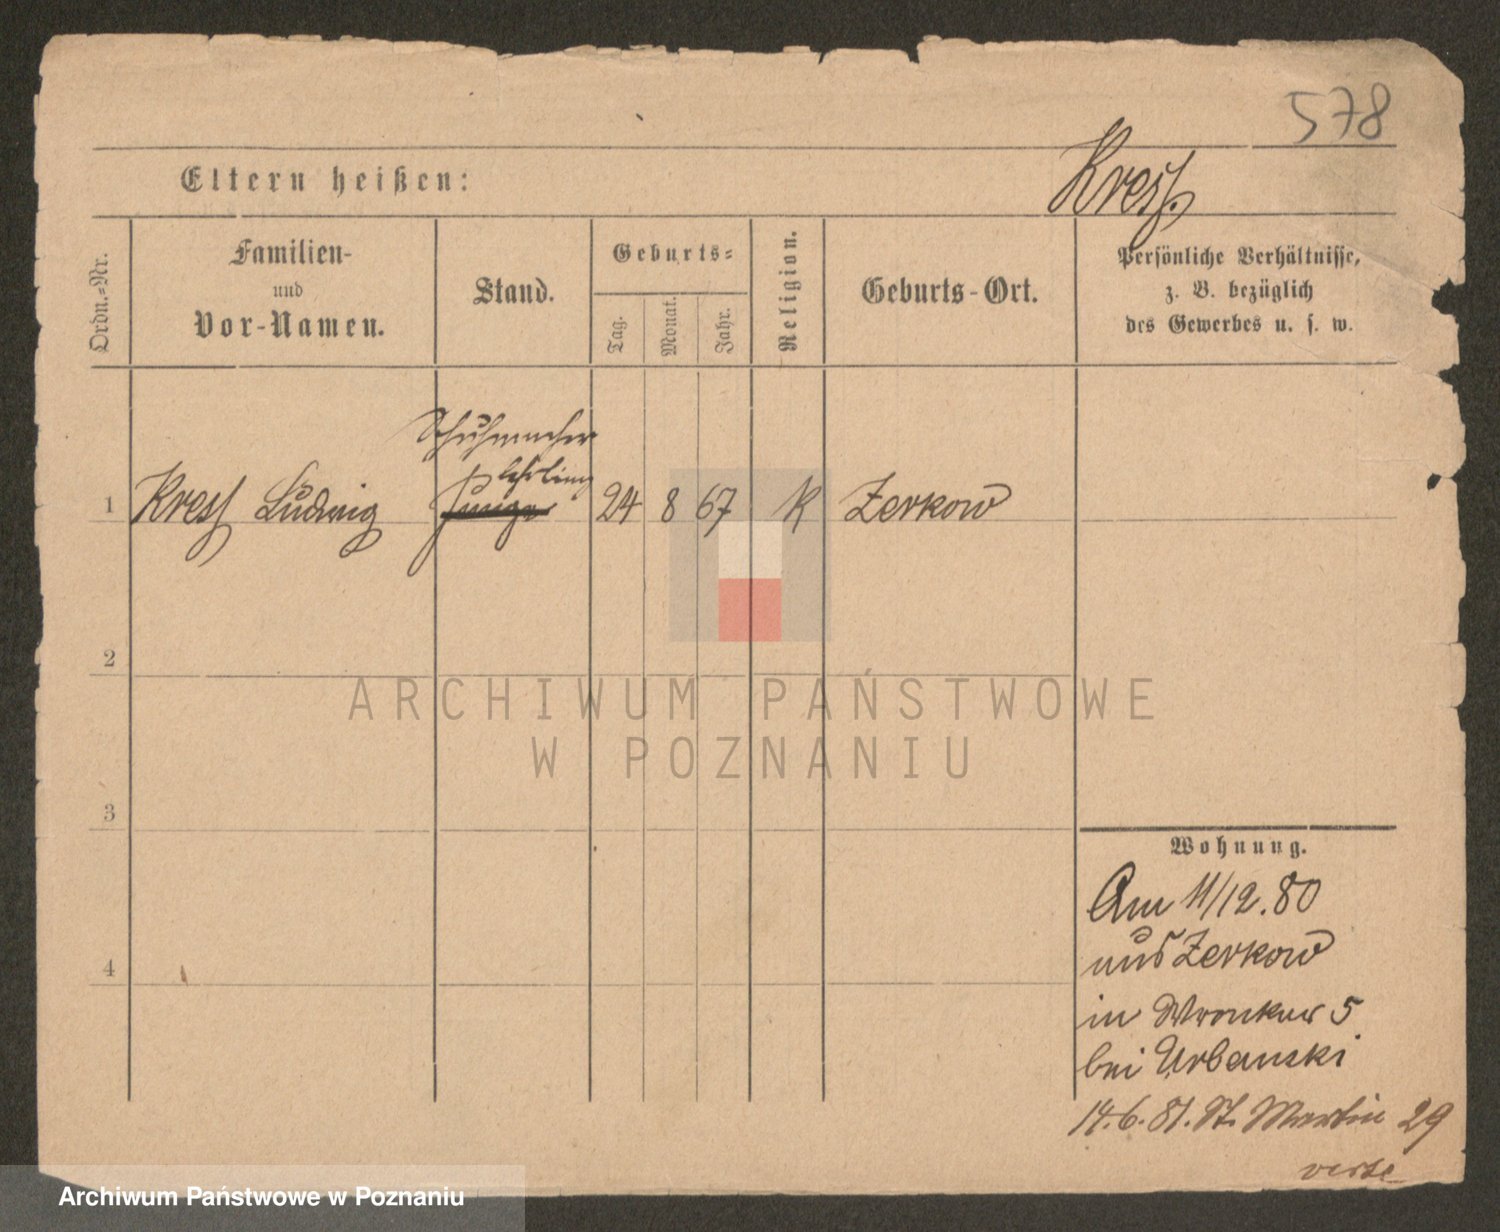 578
Eltern heißen:
Kress.
Ordn.-Nr.
Familien-
und
Vor-Namen.
Stand.
Geburts-
Tag.
Monat.
Jahr.
Religion.
Geburts-Ort.
Persönliche Verhältnisse,
z. B. bezüglich
des Gewerbes u. s. w.
Schuhmacher
lehrling
1 Kress Ludwig 24 8 67 K Zerkow
2
3
4
Wohnung.
Am 11/12.80
aus Zerkow
in Wronker 5
bei Urbanski
14.6.81. St. Martin 29
verte
ARCHIWUM PAŃSTWOWE
W POZNANIU
Archiwum Państwowe w Poznaniu